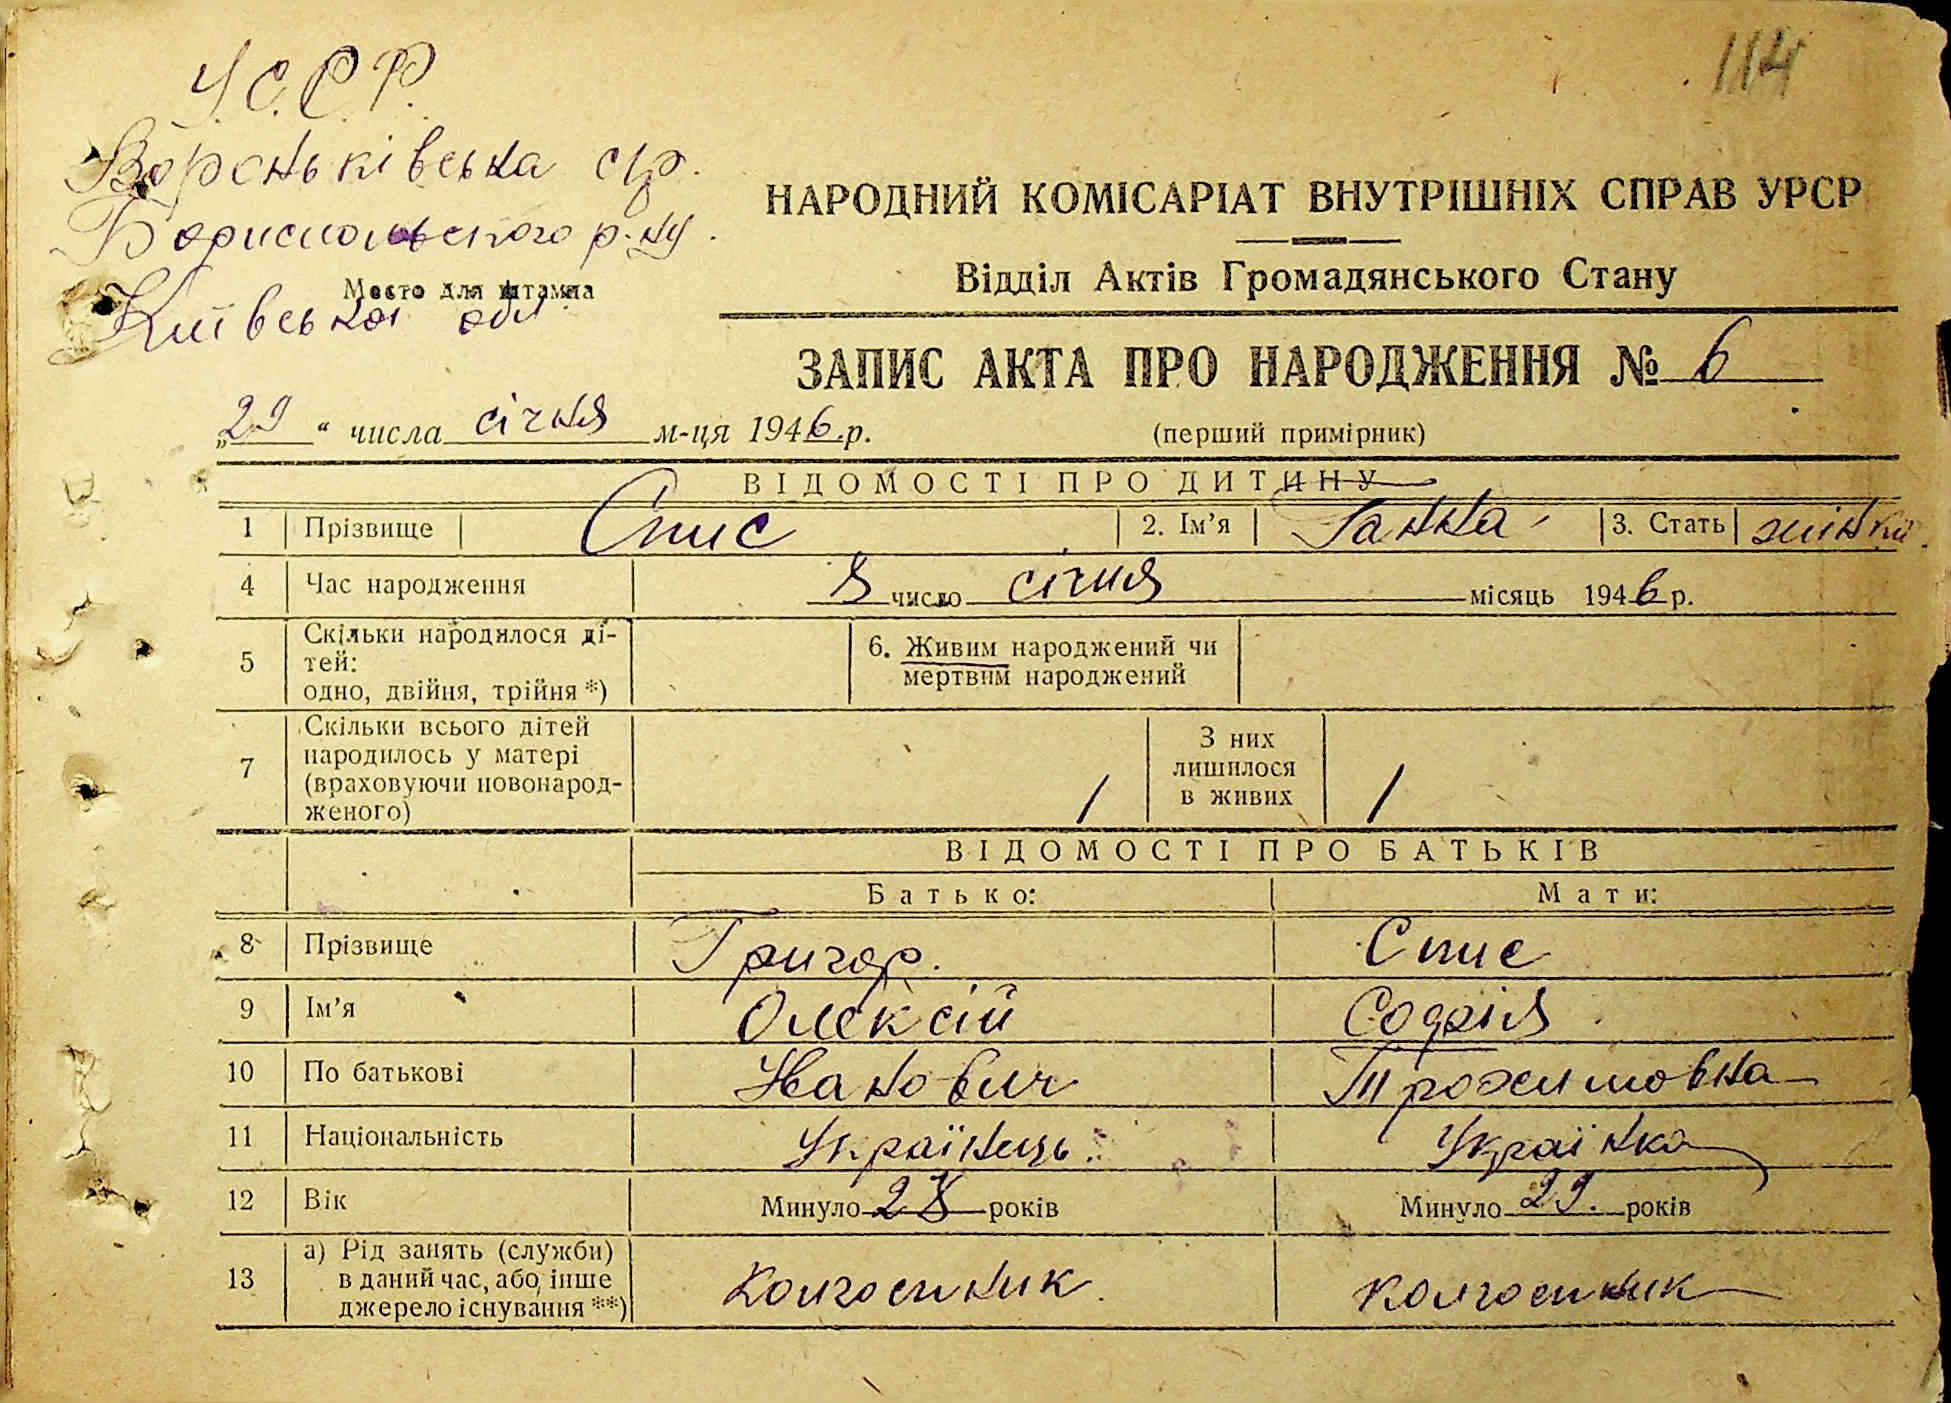 У.С.С.Р.
114
Вороньківська с/р.
Бориспольського р-ну.
Место для штампа
Київської обл.
НАРОДНИЙ КОМІСАРІАТ ВНУТРІШНІХ СПРАВ УРСР
Відділ Актів Громадянського Стану
ЗАПИС АКТА ПРО НАРОДЖЕННЯ № 6
„29“ числа січня м-ця 1946 р.
(перший примірник)
ВІДОМОСТІ ПРО ДИТИНУ
1 Прізвище Спис 2. Ім’я Ганна 3. Стать жінки
4 Час народження 8 число січня місяць 1946 р.
5 Скільки народилося ді-
тей:
одно, двійня, трійня *)
6. Живим народжений чи
мертвим народжений
7 Скільки всього дітей
народилось у матері
(враховуючи новонарод-
женого)
1
З них
лишилося
в живих
1
ВІДОМОСТІ ПРО БАТЬКІВ
Батько: Мати:
8 Прізвище Григор. Спис
9 Ім’я Олексій Софія
10 По батькові Іванович Трохимовна
11 Національність Українець. Українка
12 Вік Минуло 28 років Минуло 29. років
13 а) Рід занять (служби)
в даний час, або, інше
джерело існування **)
Колгоспник. колгоспник